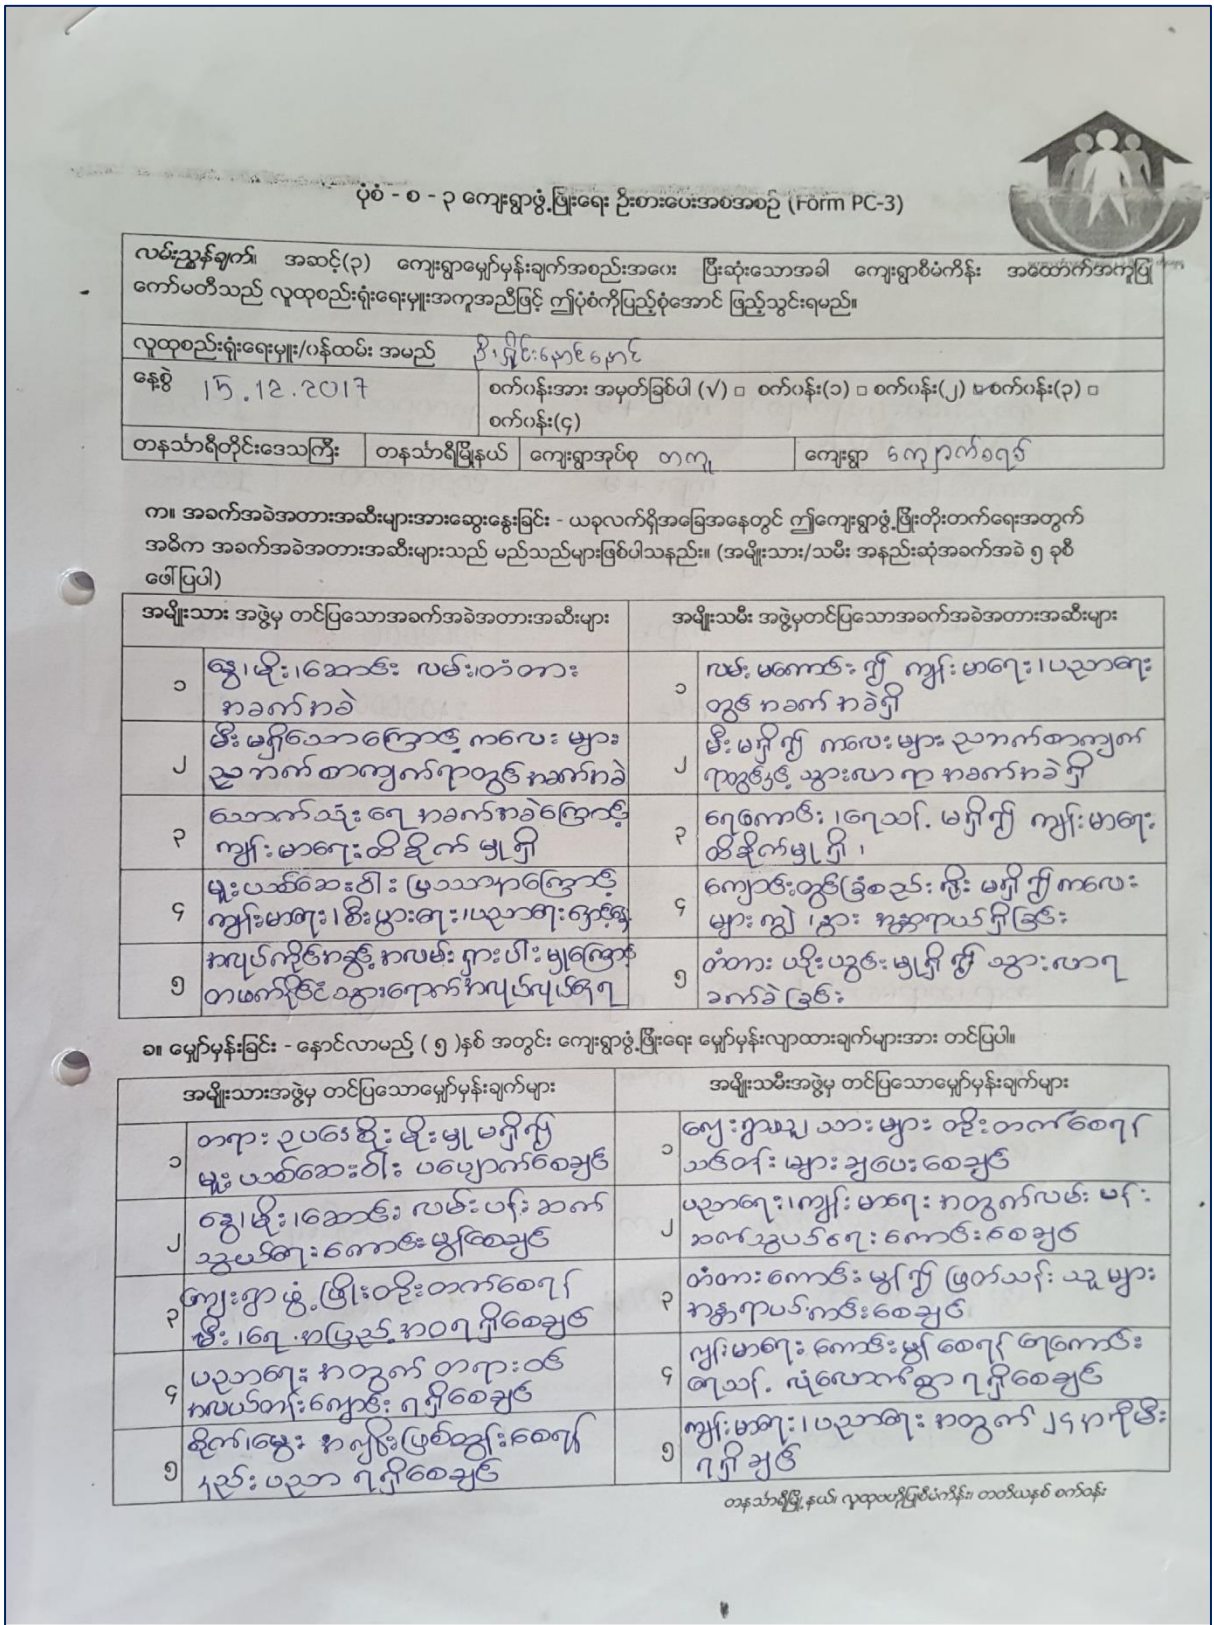 ပုံစံ - စ - ၃ ကျေးရွာဖွံ့ဖြိုးရေး ဦးစားပေးအစအစဉ် (Form PC-3)
လမ်းညွှန်ချက်။ အဆင့်(၃) ကျေးရွာမျှော်မှန်းချက်အစည်းအဝေး ပြီးဆုံးသောအခါ ကျေးရွာစီမံကိန်း အထောက်အကူပြု
ကော်မတီသည် လူထုစည်းရုံးရေးမှူးအကူအညီဖြင့် ဤပုံစံကိုပြည့်စုံအောင် ဖြည့်သွင်းရမည်။
လူထုစည်းရုံးရေးမှူး/ဝန်ထမ်း အမည် ဦးလှိုင်းနောင်နောင်
နေ့စွဲ 15.12.2017 စက်ဝန်းအား အမှတ်ခြစ်ပါ (√) □ စက်ဝန်း(၁) □ စက်ဝန်း(၂) ☑ စက်ဝန်း(၃) □
စက်ဝန်း(၄)
တနင်္သာရီတိုင်းဒေသကြီး တနင်္သာရီမြို့နယ် ကျေးရွာအုပ်စု တကူ ကျေးရွာ ကျောက်စရစ်
က။ အခက်အခဲအတားအဆီးများအားဆွေးနွေးခြင်း - ယခုလက်ရှိအခြေအနေတွင် ဤကျေးရွာဖွံ့ဖြိုးတိုးတက်ရေးအတွက်
အဓိက အခက်အခဲအတားအဆီးများသည် မည်သည်များဖြစ်ပါသနည်း။ (အမျိုးသား/သမီး အနည်းဆုံးအခက်အခဲ ၅ ခုစီ
ဖေါ်ပြပါ)
အမျိုးသား အဖွဲ့မှ တင်ပြသောအခက်အခဲအတားအဆီးများ အမျိုးသမီး အဖွဲ့မှတင်ပြသောအခက်အခဲအတားအဆီးများ
၁ နွေ၊မိုး၊ဆောင်း လမ်း၊တံတား
အခက်အခဲ
၁ လမ်းမကောင်း၍ ကျန်းမာရေး၊ပညာရေး
တွင် အခက်အခဲရှိ
၂ မီးမရှိသောကြောင့် ကလေးများ
ညဘက်စာကျက်ရာတွင်အခက်အခဲ
၂ မီးမရှိ၍ ကလေးများ ညဘက်စာကျက်
ရာတွင်နှင့် သွားလာရာ အခက်အခဲရှိ
၃ သောက်သုံးရေ အခက်အခဲကြောင့်
ကျန်းမာရေးထိခိုက်မှုရှိ
၃ ရေကောင်း၊ရေသန့် မရှိ၍ ကျန်းမာရေး
ထိခိုက်မှုရှိ၊
၄ မူးယစ်ဆေးဝါးပြဿနာကြောင့်
ကျန်းမာရေး၊စီးပွားရေး၊ပညာရေး
၄ ကျောင်းတွင်ခြံစည်းရိုးမရှိ၍ကလေး
များကျွဲ၊နွား အန္တရာယ်ရှိခြင်း
၅ အလုပ်ကိုင်အခွင့်အလမ်းရှားပါးမှုကြောင့်
တဖက်နိုင်ငံသွားရောက်အလုပ်လုပ်နေရ
၅ တံတား ယိုးယွင်းမှုရှိ၍ သွားလာရ
ခက်ခဲခြင်း
ခ။ မျှော်မှန်းခြင်း - နောင်လာမည့် ( ၅ )နှစ် အတွင်း ကျေးရွာဖွံ့ဖြိုးရေး မျှော်မှန်းလျာထားချက်များအား တင်ပြပါ။
အမျိုးသားအဖွဲ့မှ တင်ပြသောမျှော်မှန်းချက်များ အမျိုးသမီးအဖွဲ့မှ တင်ပြသောမျှော်မှန်းချက်များ
၁ တရားဥပဒေစိုးမိုးမှုမရှိ၍
မူးယစ်ဆေးဝါး ပပျောက်စေချင်
၁ ကျေးရွာသူ၊သားများ တိုးတက်စေရန်
သင်တန်းများချပေးစေချင်
၂ နွေ၊မိုး၊ဆောင်း လမ်းပန်းဆက်
သွယ်ရေးကောင်းမွန်စေချင်
၂ ပညာရေး၊ကျန်းမာရေးအတွက်လမ်းပန်း
ဆက်သွယ်ရေးကောင်းစေချင်
၃ ကျေးရွာဖွံ့ဖြိုးတိုးတက်စေရန်
မီး၊ရေ အပြည့်အဝရရှိစေချင်
၃ တံတားကောင်းမွန်၍ ဖြတ်သန်းသူများ
အန္တရာယ်ကင်းစေချင်
၄ ပညာရေးအတွက် တရားဝင်
အလယ်တန်းကျောင်းရရှိစေချင်
၄ ကျန်းမာရေးကောင်းမွန်စေရန် ရေကောင်း
ရေသန့် လုံလောက်စွာရရှိစေချင်
၅ စိုက်၊မွေး အကျိုးဖြစ်ထွန်းစေရန်
နည်းပညာရရှိစေချင်
၅ ကျန်းမာရေး၊ပညာရေးအတွက် ၂၄နာရီမီး
ရရှိချင်
တနင်္သာရီမြို့နယ်၊ လူထုဗဟိုပြုစီမံကိန်း၊ တတိယနှစ် စက်ဝန်း